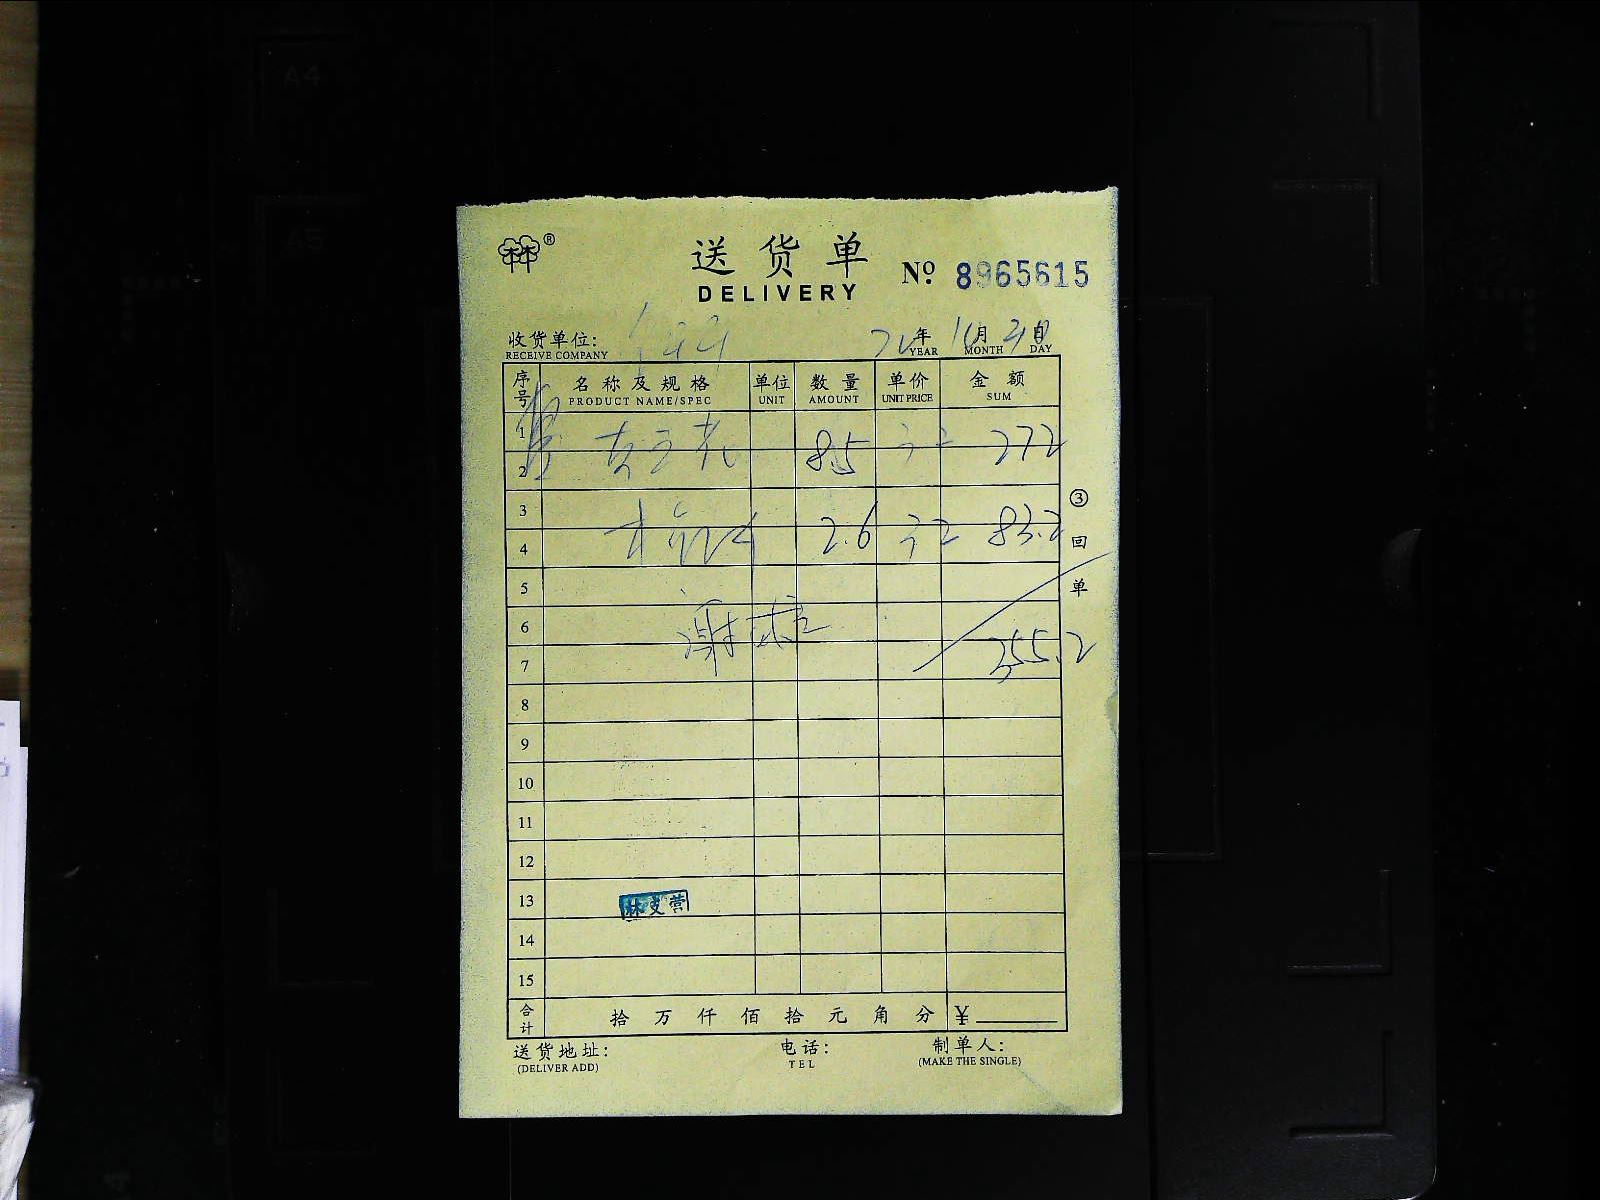 送货单
DELIVERY
№ 8965615
收货单位:
RECEIVE COMPANY
年 月 日
YEAR MONTH DAY
序号 名称及规格 单位 数量 单价 金额
PRODUCT NAME/SPEC UNIT AMOUNT UNIT PRICE SUM
1
85 32 272
2
3
2.6 32 83.2
4
5
6
谢
7
355.2
8
9
10
11
12
13
林支营
14
15
合计 拾 万 仟 佰 拾 元 角 分 ¥
③回单
送货地址: 电话: 制单人:
(DELIVER ADD) TEL (MAKE THE SINGLE)
A4
A5